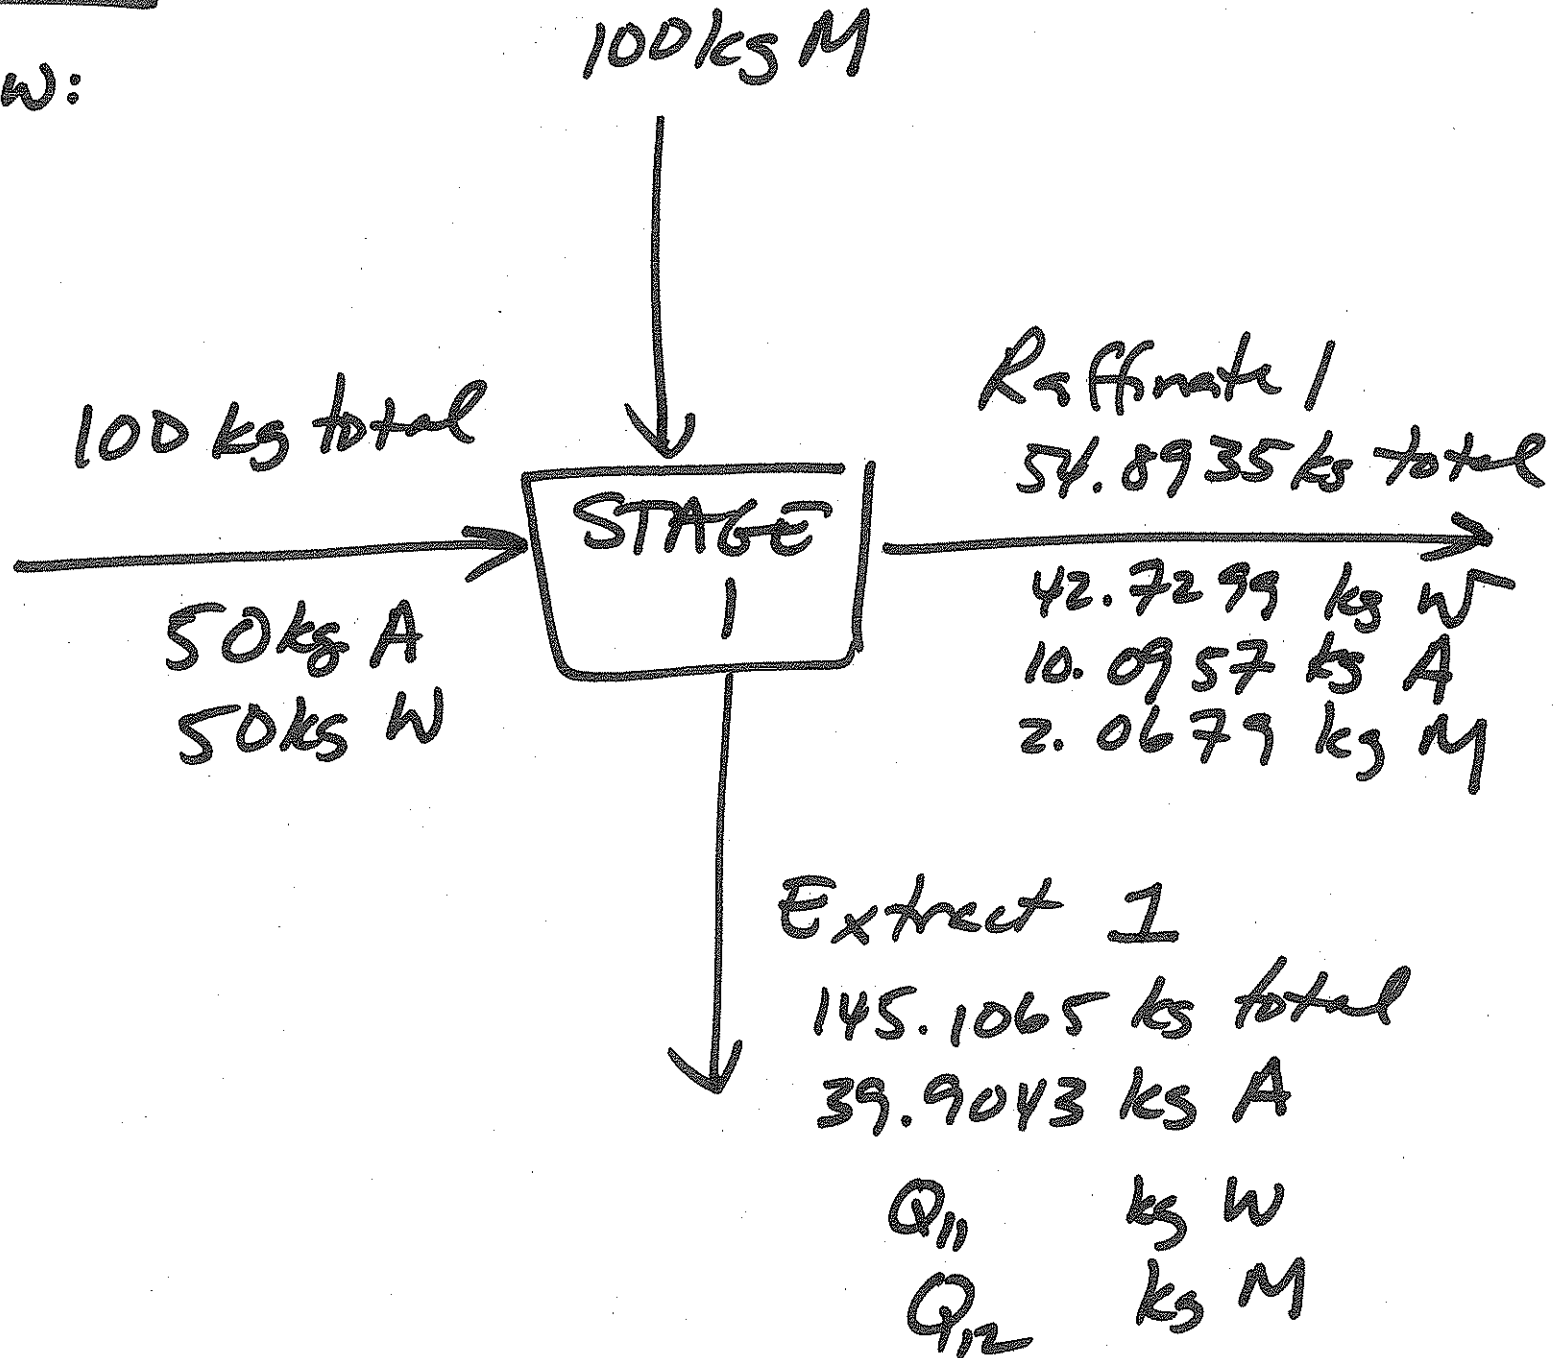 100 kg M
W:
100 kg total
50 kg A
50 kg W
STAGE
1
Raffinate 1
54.8935 kg total
42.7299 kg W
10.0957 kg A
2.0679 kg M
Extract 1
145.1065 kg total
39.9043 kg A
Q11 kg W
Q12 kg M